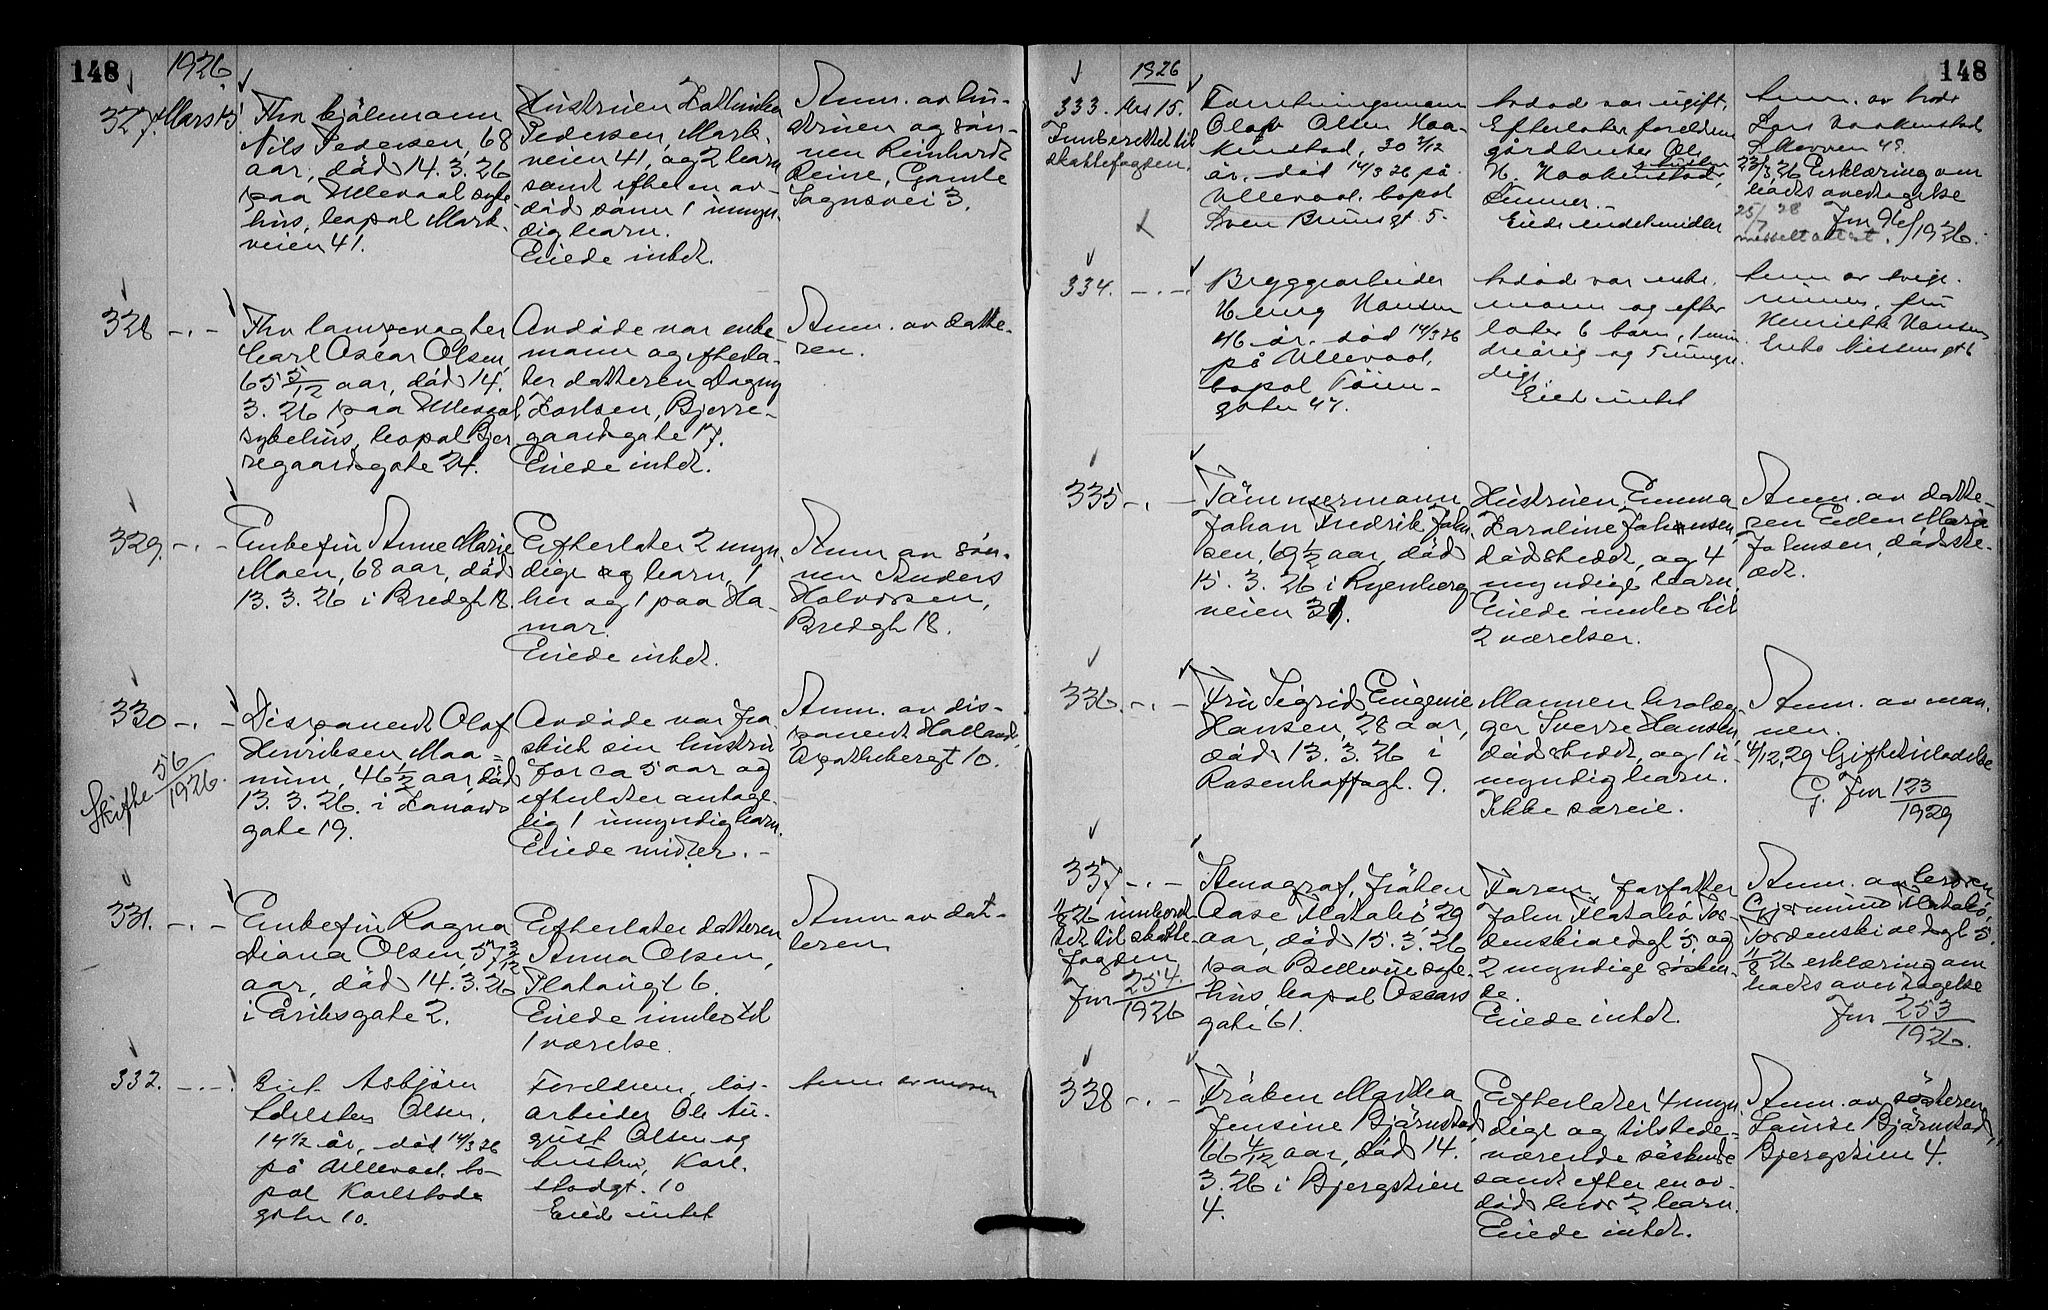 148
1926
327. Mars 15.
Fhv kjölemann
Nils Pedersen, 68
aar, död 14.3.26
paa Ullevaal syke
hus, bopal Mark
veien 41.
Hustruen
Pedersen, Mark
veien 41, og 2 barn
samt efter en av-
död sönn 1 umyn
dig barn.
Eiede intet.
Anm. av hu-
struen og søn-
nen Reinhardt
Reine, Gamle
Sognsvei 3.
328 -.-
Fhv lampevagter
Carl Oscar Olsen,
65 5/12 aar, död 14.
3.26 paa Ullevaal
sykehus, bopal Bjer
regaardsgate 24.
Avdöde var enke-
mann og efterla-
ter datteren Dagny
Karlsen, Bjerre-
gaardsgate 17.
Eiede intet.
Anm. av datte-
ren.
329. -.-
Enkefru Anne Marie
Moen, 68 aar, död
13.3.26 i Bredgt 18.
Efterlater 2 myn
dige barn, 1
her og 1 paa Ha-
mar.
Eiede intet.
Anm av søn-
nen Anders
Halvorsen,
Bredgt 18.
330 -.-
Skifte 56/1926.
Disponent Olaf
Henriksen Maa-
num, 46 1/2 aar, död
13.3.26 i Kanons
gate 19.
Avdöde var fra
skilt sin hustru
for ca 5 aar og
efterlater antage-
lig 1 umyndig barn.
Eiede midler. -
Anm. av dis-
ponent Holland,
Apothekergt 10.
331. -.-
Enkefru Ragna
Diana Olsen, 57 3/12
aar, död 14.3.26
i Eriksgate 2.
Efterlater datteren
Anna Olsen,
Platougt 6.
Eiede indbo til
1 værelse.
Anm av dat-
teren
332. -.-
Gut Asbjörn
Olsen,
14 1/2 år, död 14/3 26
på Ullevaal, bo-
pal Karlstads
gaten 10.
Foreldrene, løs-
arbeider Ole Au-
gust Olsen og
hustru, Karl-
stadgt. 10
Eiede intet
Anm av moren
148
1926
333. Mrs 15.
Innberettet til
skattefogden.
Forretningsmann
Olaf Olsen Haa-
kenstad, 30 2/12
år, död 14/3 26 på
Ullevaal, bopal
Sven Bruns gt 5.
Avdöde var ugift.
Efterlater foreldrene
gårdbruker Ole
H. Haakenstad,
Eiede endel midler
Anm. av bror
Lars Haakenstad
23/3 26 Erklæring om
boets overtagelse
Jnr 96/1926.
25/7 28
meddelt attest.
334. -.-
Bryggearbeider
Henry Hansen
46 år, död 14/3 26
på Ullevaal,
bopal Töien-
gaten 47.
Avdöde var enke-
mann og efter
later 6 barn, 1 myn
dig og 5 umyn
dige
Eiede intet
Anm av svige-
rinnen, fru
Henriette Hansen
335 -.-
Tömmermann
Johan Fredrik Johan
sen, 69 1/2 aar, död
15.3.26 i Ryenberg
veien 31.
Hustruen, Emma
Karoline Johansen,
dödstedet, og 4
myndige barn.
Eiede indbo til
2 værelser.
Anm. av datte-
ren Ellen Marie
Johnsen, dödste-
det.
336. -.-
Fru Sigrid Eugenie
Hansen, 28 aar,
död 13.3.26 i
Rosenhoffgt. 9.
Mannen brolæg-
ger Sverre Hansen,
dödstedet, og 1 u-
myndig barn.
Ikke særeie.
Anm. av man-
nen.
4/12.29 Giftetilladelse
G. Jnr 123/1929
337 -.-
11/8 26 innberet
tet til skatte
fogden
Jnr 254/1926
Stenograf, fröken
Aase Flatabö 29
aar, död 15.3.26
paa Bellevue syke-
hus, bopal Oscars
gate 61.
Faren, forfatter
John Flatabö Tor-
denskioldgt 5. og
2 myndige sösken-
de.
Eiede intet.
Anm. av broren
Gjermund Flatabö,
Tordenskioldgt 5.
11/8 26 erklæring om
boets overtagelse
Jnr 253/1926.
338 -.-
Fröken Marthea
Jensine Björnstad,
66 4/12 aar, död 14.
3.26 i Bjergstien
4.
Efterlater 4 myn
dige og tilstede-
værende söskende
samt efter en av-
död bror 2 barn.
Eiede intet.
Anm. av söstteren
Louise Björnstad,
Bjergstien 4.